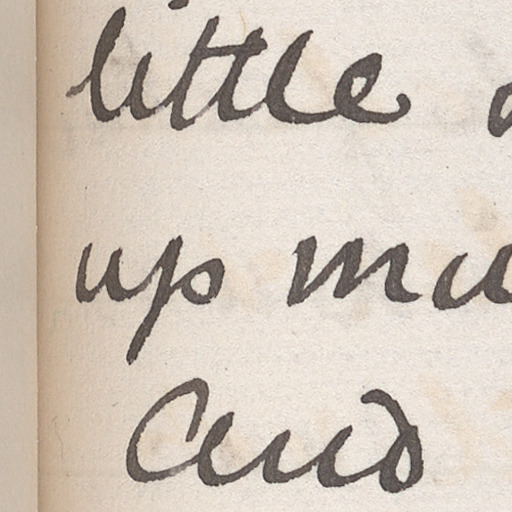 little
up
and